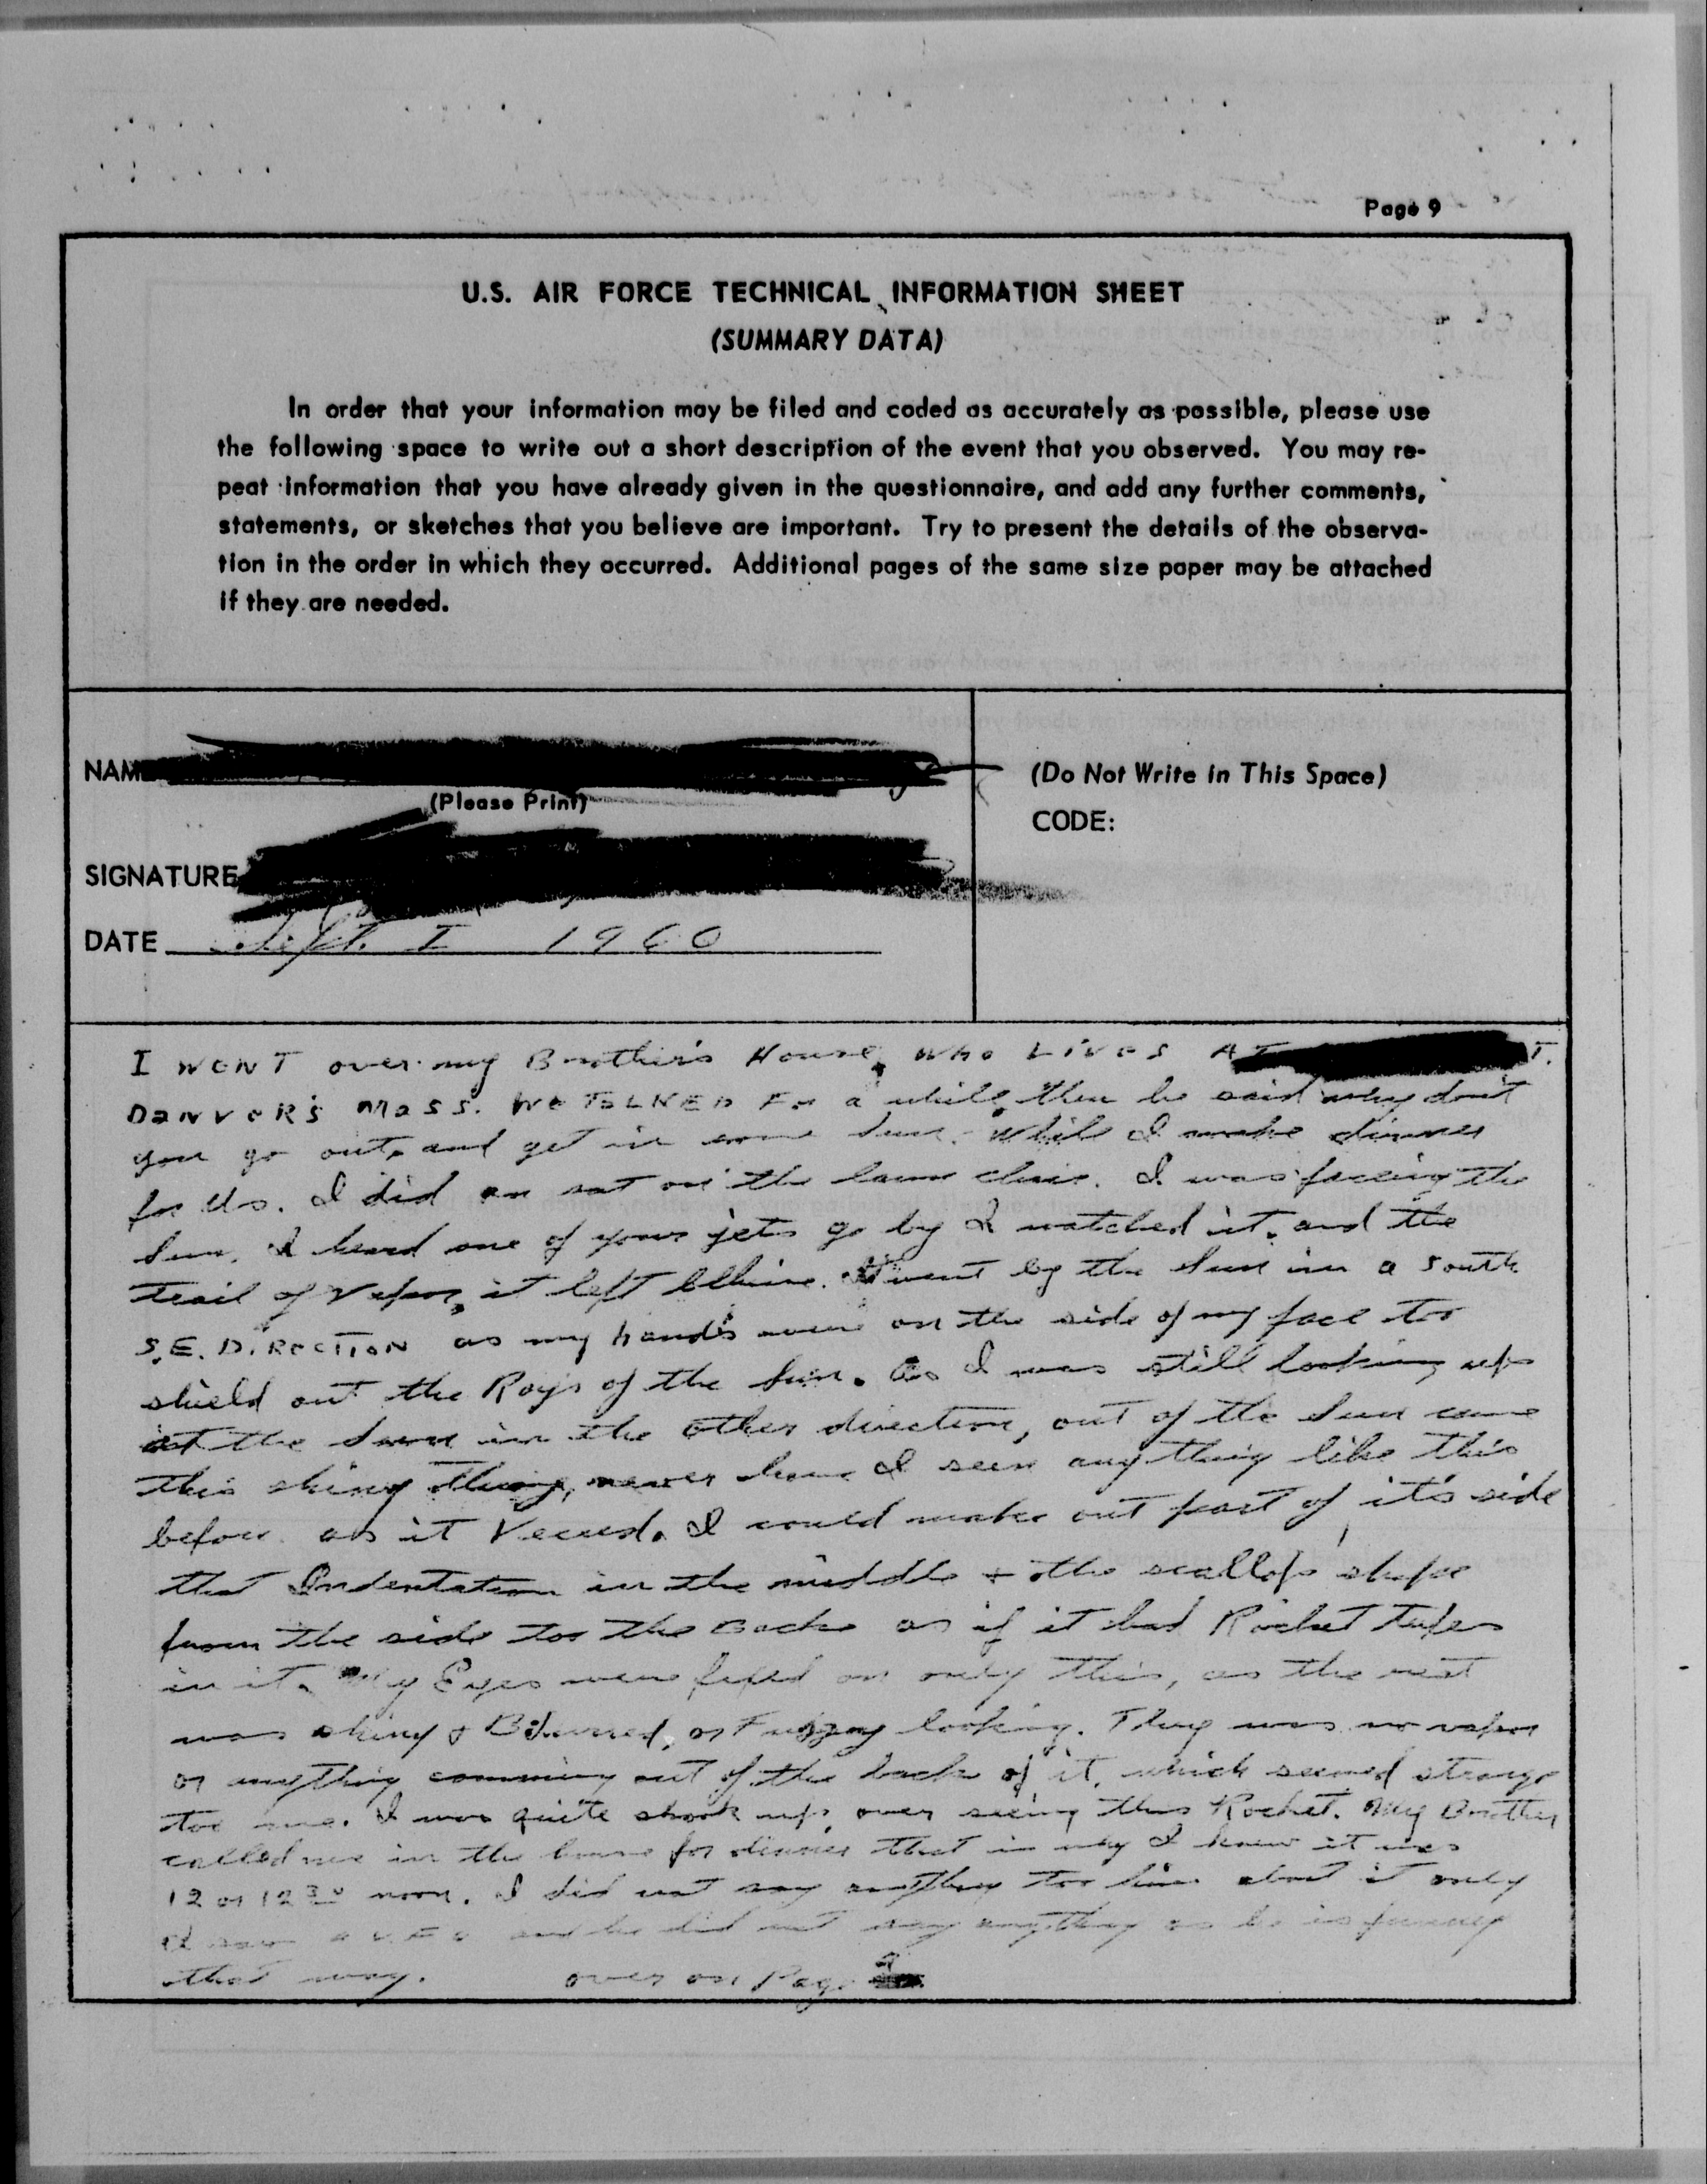 Page 9
U.S. AIR FORCE TECHNICAL INFORMATION SHEET
(SUMMARY DATA)
In order that your information may be filed and coded as accurately as possible, please use
the following space to write out a short description of the event that you observed. You may re-
peat information that you have already given in the questionnaire, and add any further comments,
statements, or sketches that you believe are important. Try to present the details of the observa-
tion in the order in which they occurred. Additional pages of the same size paper may be attached
if they are needed.
NAM
(Please Print)
SIGNATURE
DATE Sept. I 1960
(Do Not Write in This Space)
CODE:
I WENT over my Brother's House, WHO LIVES AT T.
DANVER'S MASS. WE TALKED For a while, then he said why don't
you go out, and get in some sun. While I make dinner
for Us. I did an sat on the lawn chair. I was facing the
Sun. I heard one of your jets go by I watched it, and the
trail of Vapor, it left behine. It went by the Sun in a South
S.E. DIRECTION as my hands were on the side of my face too
shield out the Rays of the Sun. As I was still looking up
at the Sun in the other direction, out of the Sun came
this shiny thing, never have I seen any thing like this
before. as it Veered. I could make out part of it's side
that Indentation in the middle + the scallop shape
from the side too the Back as if it had Rocket tubes
in it. My Eyes were fixed on only this, as the rest
was shiny & Blurred, or Fuzzy looking. They was no vapor
or anything comming out of the back of it, which seemed strange
too me. I was quite shook up, over seeing this Rocket. My Brother
called me in the house for dinner that is why I knew it was
12 or 12 30 noon. I did not say anything too him about it only
I saw a U.F.O and he did not say anything as he is funney
that way. over on Page